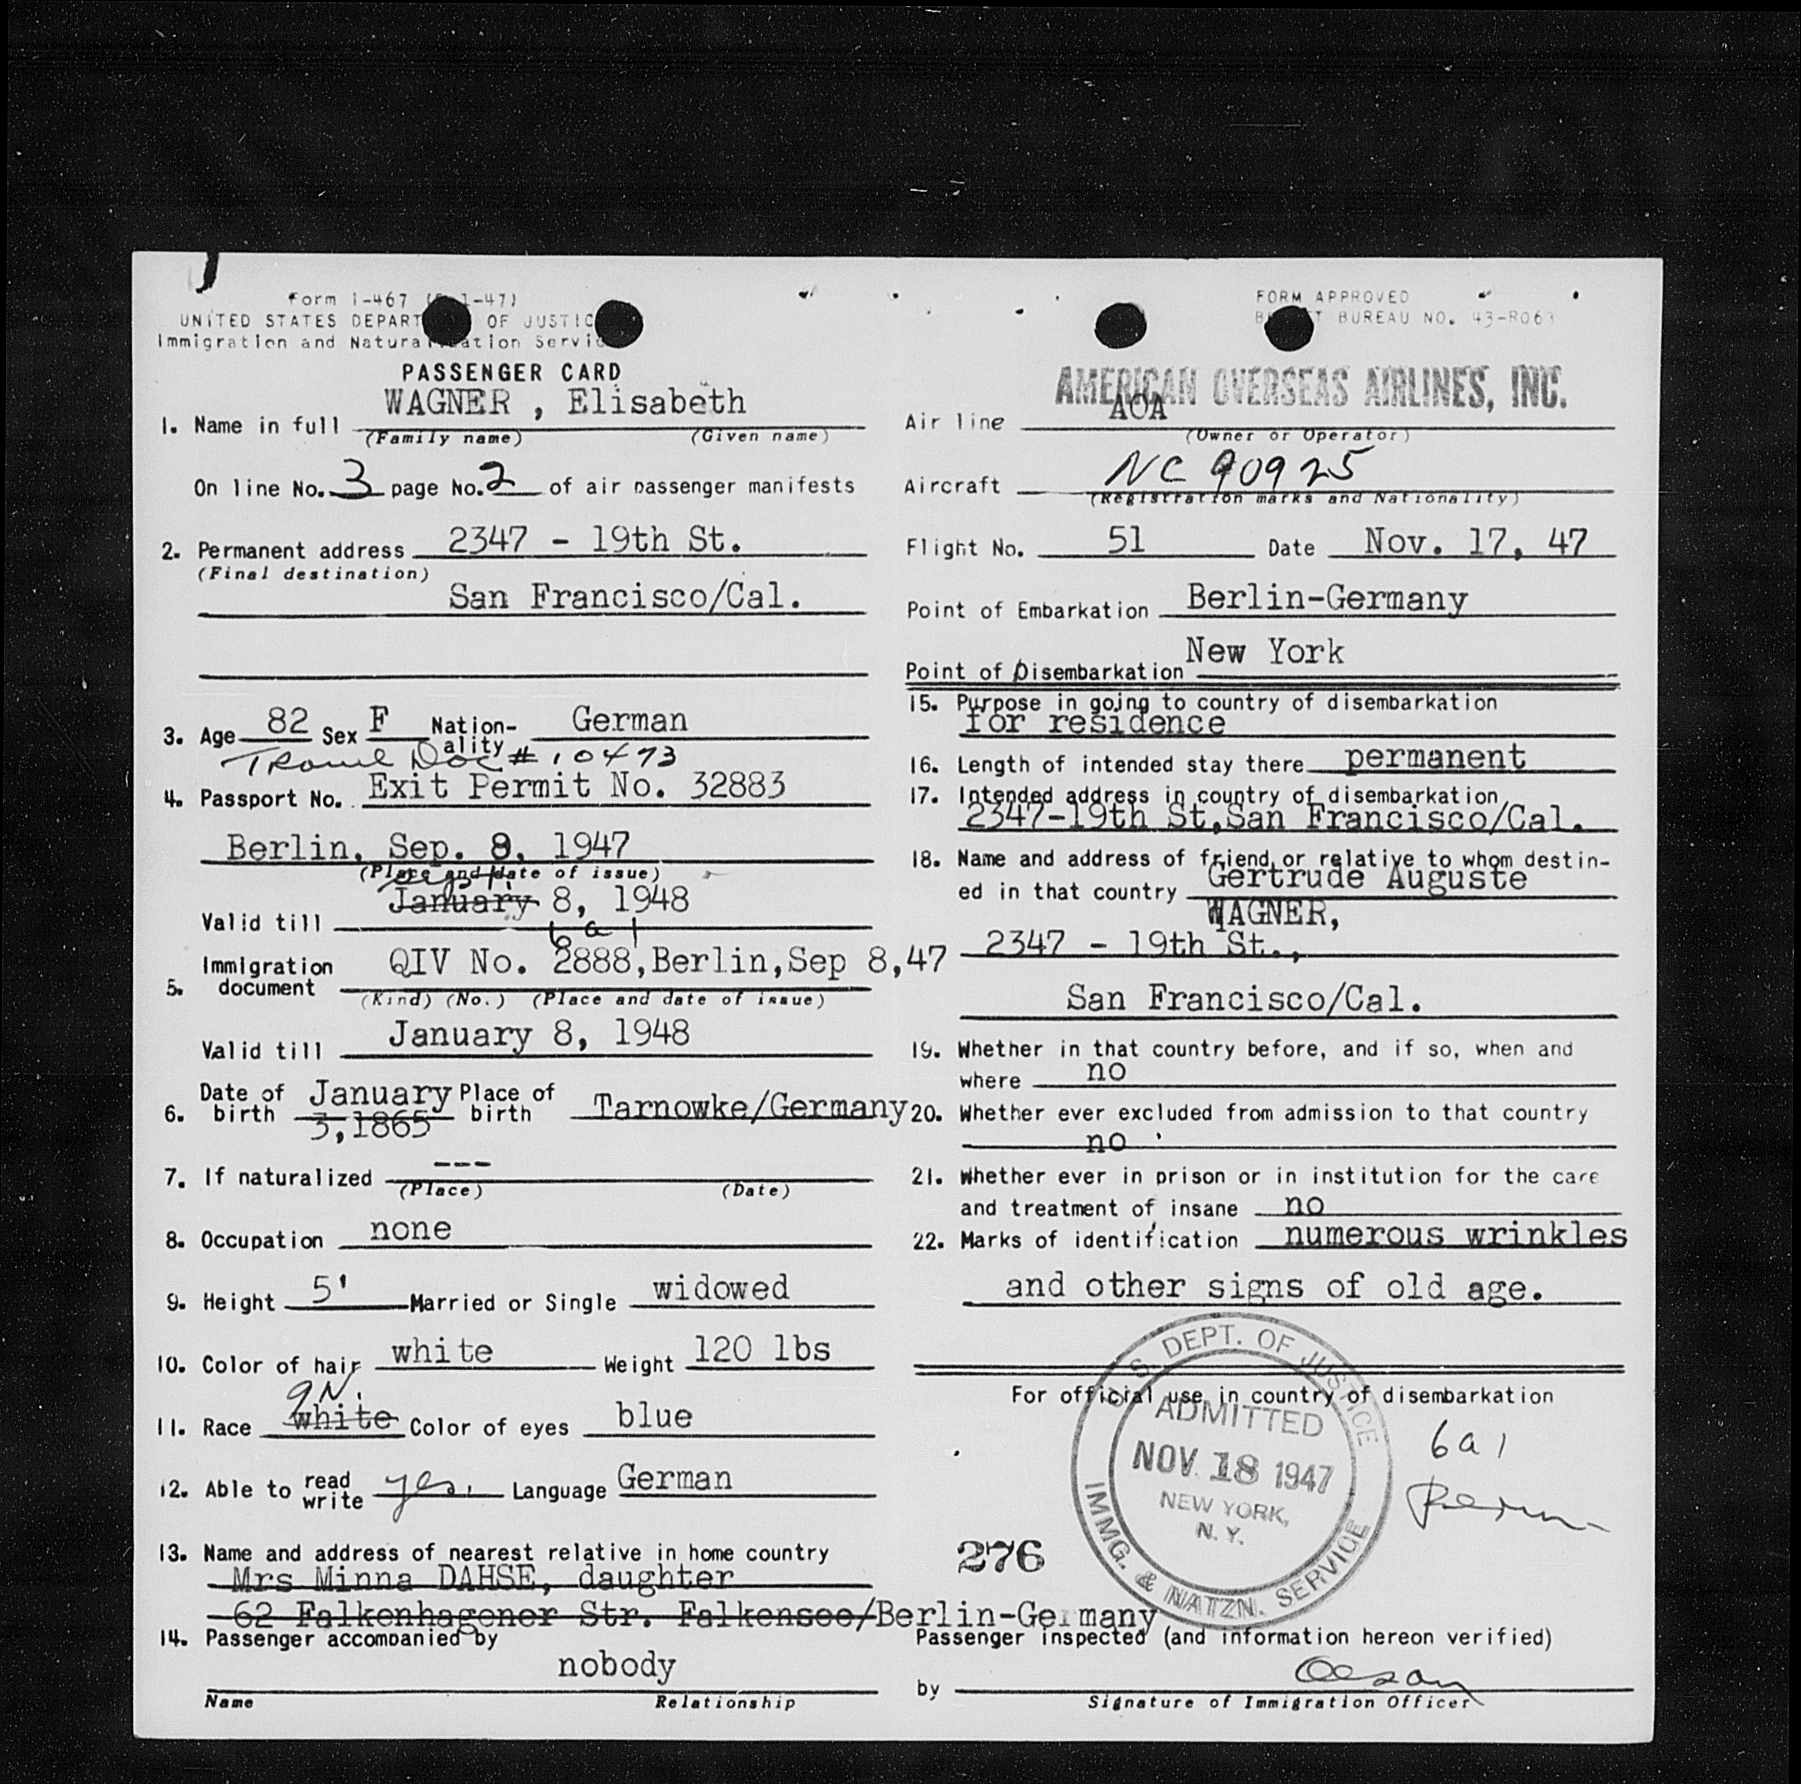 Form I-467 ( 1-47)
UNITED STATES DEPART OF JUSTIC
Immigration and Natura ation Servic
PASSENGER CARD
1. Name in full WAGNER , Elisabeth
(Family name) (Given name)
On line No. 3 page No. 2 of air passenger manifests
2. Permanent address 2347 - 19th St.
(Final destination)
San Francisco/Cal.
3. Age 82 Sex F Nation-ality German
Travel Doc # 10473
4. Passport No. Exit Permit No. 32883
Berlin, Sep. 8, 1947
(Place and date of issue)
Valid till January 8, 1948
6a1
5. Immigration document QIV No. 2888,Berlin,Sep 8,47
(Kind) (No.) (Place and date of issue)
Valid till January 8, 1948
6. Date of birth January 3,1865 Place of birth Tarnowke/Germany
7. If naturalized ---
(Place) (Date)
8. Occupation none
9. Height 5' Married or Single widowed
10. Color of hair white Weight 120 lbs
11. Race white Color of eyes blue
12. Able to read write yes. Language German
13. Name and address of nearest relative in home country
Mrs Minna DAHSE, daughter
62 Falkenhagener Str. Falkensee/Berlin-Germany
14. Passenger accompanied by
nobody
Name Relationship
FORM APPROVED
B T BUREAU NO. 43-R063
AMERICAN OVERSEAS AIRLINES, INC.
Air line AOA
(Owner or Operator)
Aircraft NC 90925
(Registration marks and Nationality)
Flight No. 51 Date Nov. 17, 47
Point of Embarkation Berlin-Germany
Point of Disembarkation New York
15. Purpose in going to country of disembarkation
for residence
16. Length of intended stay there permanent
17. Intended address in country of disembarkation
2347-19th St,San Francisco/Cal.
18. Name and address of friend or relative to whom destin-
ed in that country Gertrude Auguste
WAGNER,
2347 - 19th St.,
San Francisco/Cal.
19. Whether in that country before, and if so, when and
where no
20. Whether ever excluded from admission to that country
no
21. Whether ever in prison or in institution for the care
and treatment of insane no
22. Marks of identification numerous wrinkles
and other signs of old age.
For official use in country of disembarkation
U. S. DEPT. OF JUSTICE
ADMITTED
NOV 18 1947
NEW YORK,
N. Y.
IMMG. & NATZN. SERVICE
6a1
276
Passenger inspected (and information hereon verified)
by
Signature of Immigration Officer